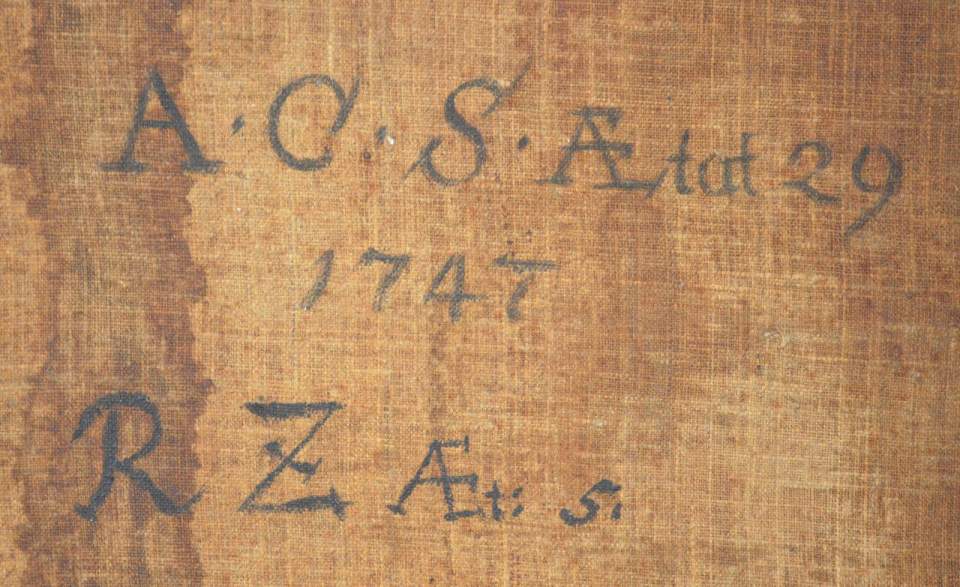 A·C·S·Ætat 29
1747
R Z Æt: 5.